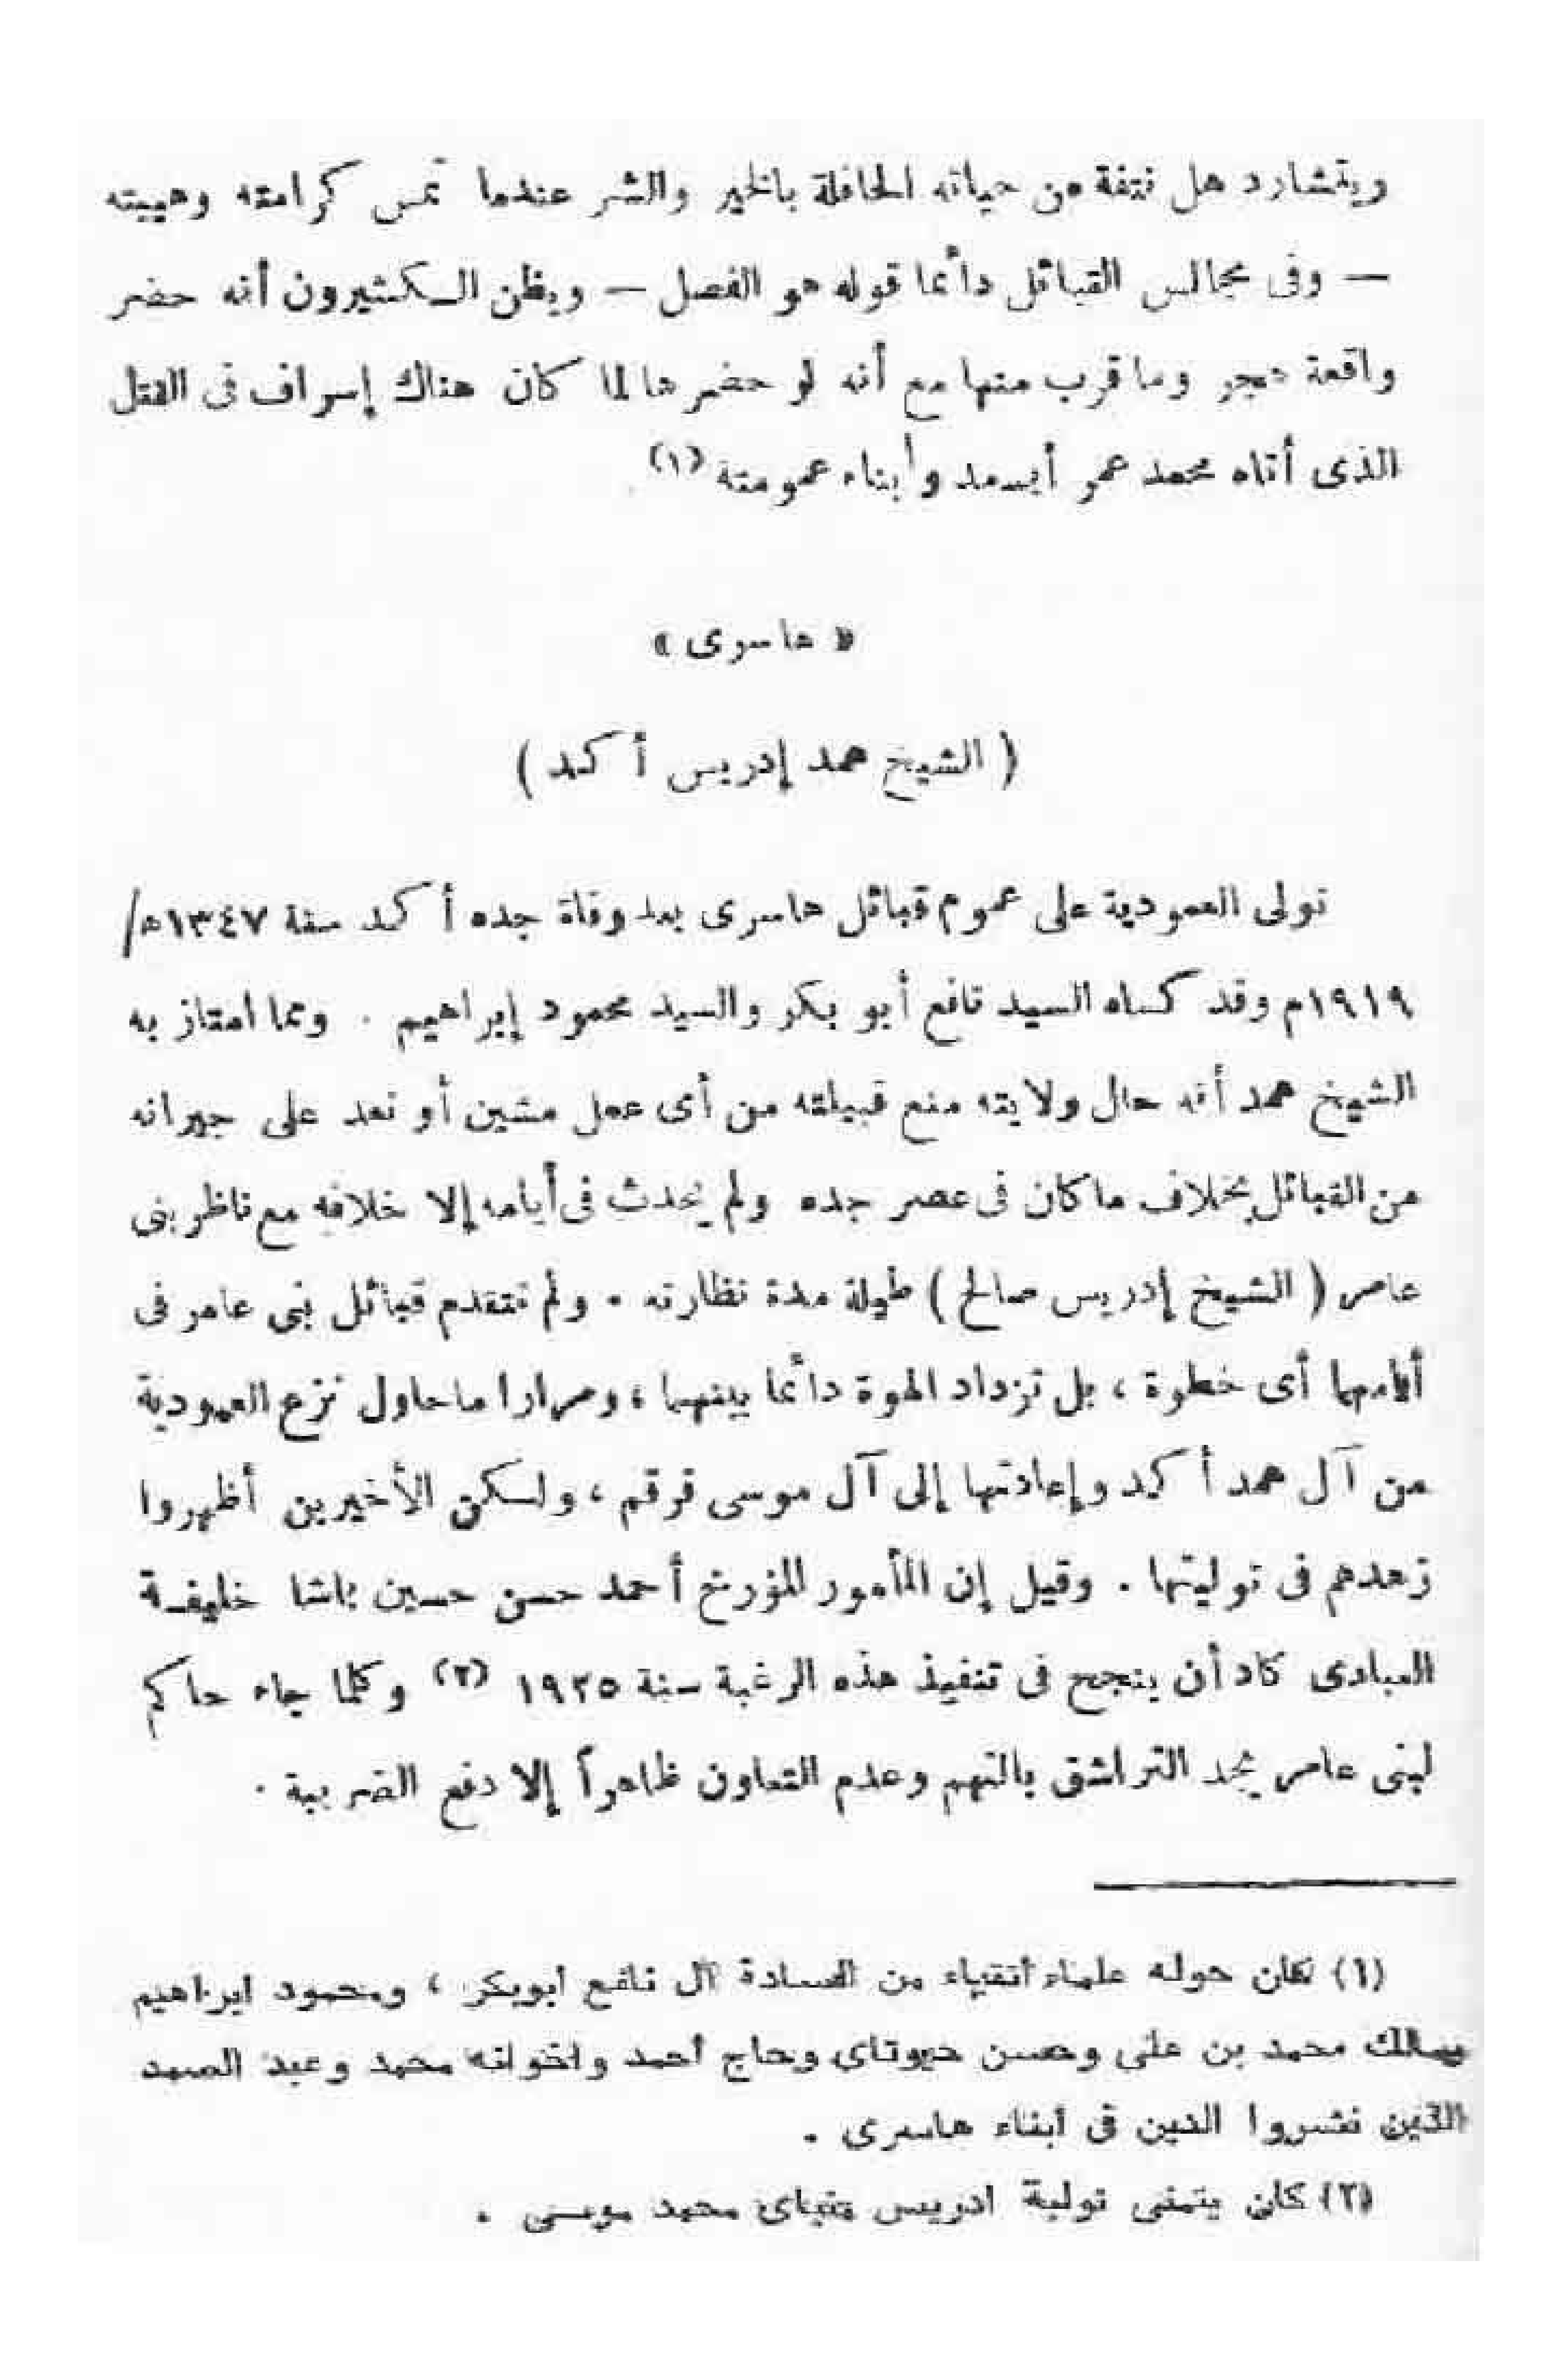 ويتشارد هل نتفة من حياته الحافلة بالخير والشر عندما تمس كرامته وهيبته
— وفى مجالس القبائل دائما قوله هو الفصل — ويظن الكثيرون أنه حضر
واقعة هجر وما قرب منها مع أنه لو حضرها لما كان هناك إسراف فى القتل
الذى أتاه محمد عمر أيسمد وأبناء عمومته (١)
« هاسرى »
( الشيخ همد إدريس أكد )
تولى العمودية على عموم قبائل هاسرى بعد وفاة جده أكد سنة ١٣٤٧ه/
١٩١٩م وقد كساه السيد نافع أبو بكر والسيد محمود إبراهيم . ومما امتاز به
الشيخ همد أنه حال ولايته منع قبيلته من أى عمل مشين أو تعد على جيرانه
من القبائل بخلاف ما كان فى عصر جده ولم يحدث فى أيامه إلا خلافه مع ناظر بنى
عامر ( الشيخ إدريس صالح ) طيلة مدة نظارته . ولم تتقدم قبائل بنى عامر فى
أيامهما أى خطوة ، بل تزداد الهوة دائما بينهما ، ومرارا ما حاول نزع العمودية
من آل همد أكد وإعادتها إلى آل موسى قرقم ، ولكن الأخيرين أظهروا
زهدهم فى توليتها . وقيل إن المأمور المؤرخ أحمد حسن حسين باشا خليفة
العبادى كاد أن ينجح فى تنفيذ هذه الرغبة سنة ١٩٢٥ (٢) وكلما جاء حاكم
لبنى عامر يجد التراشق بالتهم وعدم التعاون ظاهراً إلا دفع الضريبة .
(١) كان حوله علماء أتقياء من السادة آل نافع أبوبكر ، ومحمود ابراهيم
محمد بن على وحسن حيوتاى وحاج أحمد واخوانه محمد وعبد الصمد
الذين نشروا الدين فى أبناء هاسرى .
(٢) كان يتمنى تولية ادريس محمد موسى .